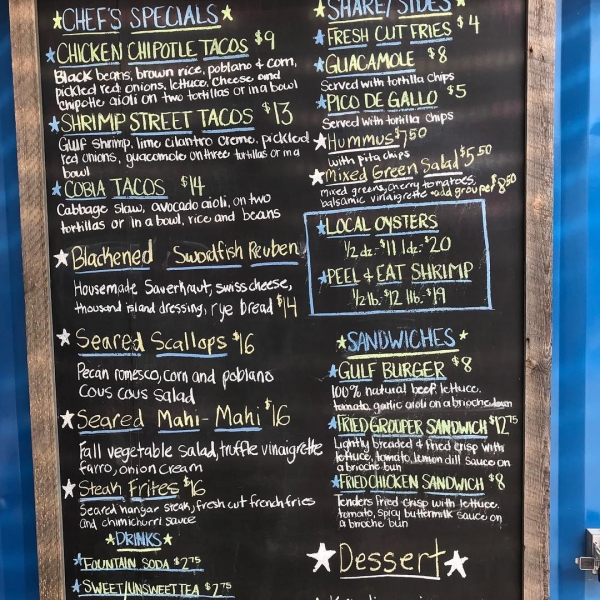 CHEF'S SPECIALS
CHICKEN CHIPOTLE TACOS $9
Black beans, brown rice, poblano & corn,
pickled red onions, lettuce, cheese and
chipotle aioli on two tortillas or in a bowl
SHRIMP STREET TACOS $13
Gulf shrimp, lime cilantro creme, pickled
red onions, guacamole on three tortillas or in a
bowl
COBIA TACOS $14
Cabbage slaw, avocado aioli, on two
tortillas or in a bowl, rice and beans
Blackened Swordfish Reuben
Housemade Saverkraut, swiss cheese,
thousand island dressing, rye bread $14
Seared Scallops $16
Pecan romesco, corn and poblano
Cous cous salad
Seared Mahi-Mahi $16
Fall vegetable salad, truffle vinaigrette
farro, onion cream
Steak Frites $16
Seared hangar steak, fresh cut french fries
and chimichurri sauce
DRINKS
FOUNTAIN SODA $2.75
SWEET/UNSWEET TEA $2.75
SHARE/SIDES
FRESH CUT FRIES $4
GUACAMOLE $8
Served with tortilla chips
PICO DE GALLO $5
Served with tortilla chips
Hummus $7.50
with pita chips
Mixed Green Salad $5.50
mixed greens, cherry tomatoes,
balsamic vinaigrette *add grouper $8.50
LOCAL OYSTERS
1/2 dz. $11 1dz. $20
PEEL & EAT SHRIMP
1/2 lb. $12 1lb. $19
SANDWICHES
GULF BURGER $8
100% natural beef, lettuce,
tomato, garlic aioli on a brioche bun
FRIED GROUPER SANDWICH $12.75
Lightly breaded & fried crisp with
lettuce, tomato, lemon dill sauce on
a brioche bun
FRIED CHICKEN SANDWICH $8
Tenders fried crisp with lettuce,
tomato, spicy buttermilk sauce on
a brioche bun
Dessert